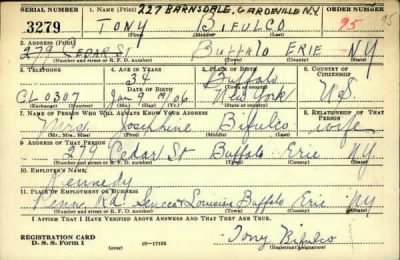 SERIAL NUMBER 1. NAME (Print) 227 BARNSDALE, GARDEVILLE N.Y. ORDER NUMBER
3279 TONY BIFULCO 95 95
(First) (Middle) (Last)
2. ADDRESS (Print)
279 CEDAR St Buffalo ERIE NY
(Number and street or R. F. D. number) (Town) (County) (State)
3. TELEPHONE 4. AGE IN YEARS 5. PLACE OF BIRTH 6. COUNTRY OF CITIZENSHIP
34 Buffalo
DATE OF BIRTH (Town or county)
CL 0307 Jan 9 1906 New York U.S.
(Exchange) (Number) (Mo.) (Day) (Yr.) (State or country)
7. NAME OF PERSON WHO WILL ALWAYS KNOW YOUR ADDRESS 8. RELATIONSHIP OF THAT PERSON
Mrs Josephine Bifulco wife
(Mr., Mrs., Miss) (First) (Middle) (Last)
9. ADDRESS OF THAT PERSON
279 Cedar St Buffalo Erie N.Y.
(Number and street or R. F. D. number) (Town) (County) (State)
10. EMPLOYER'S NAME
Kennedy
11. PLACE OF EMPLOYMENT OR BUSINESS
Penn. Rd. Seneca + Louisiana Buffalo Erie NY
(Number and street or R. F. D. number) (Town) (County) (State)
I AFFIRM THAT I HAVE VERIFIED ABOVE ANSWERS AND THAT THEY ARE TRUE.
REGISTRATION CARD
D. S. S. Form 1 (over) 16—17105 Tony Bifulco
(Registrant's signature)